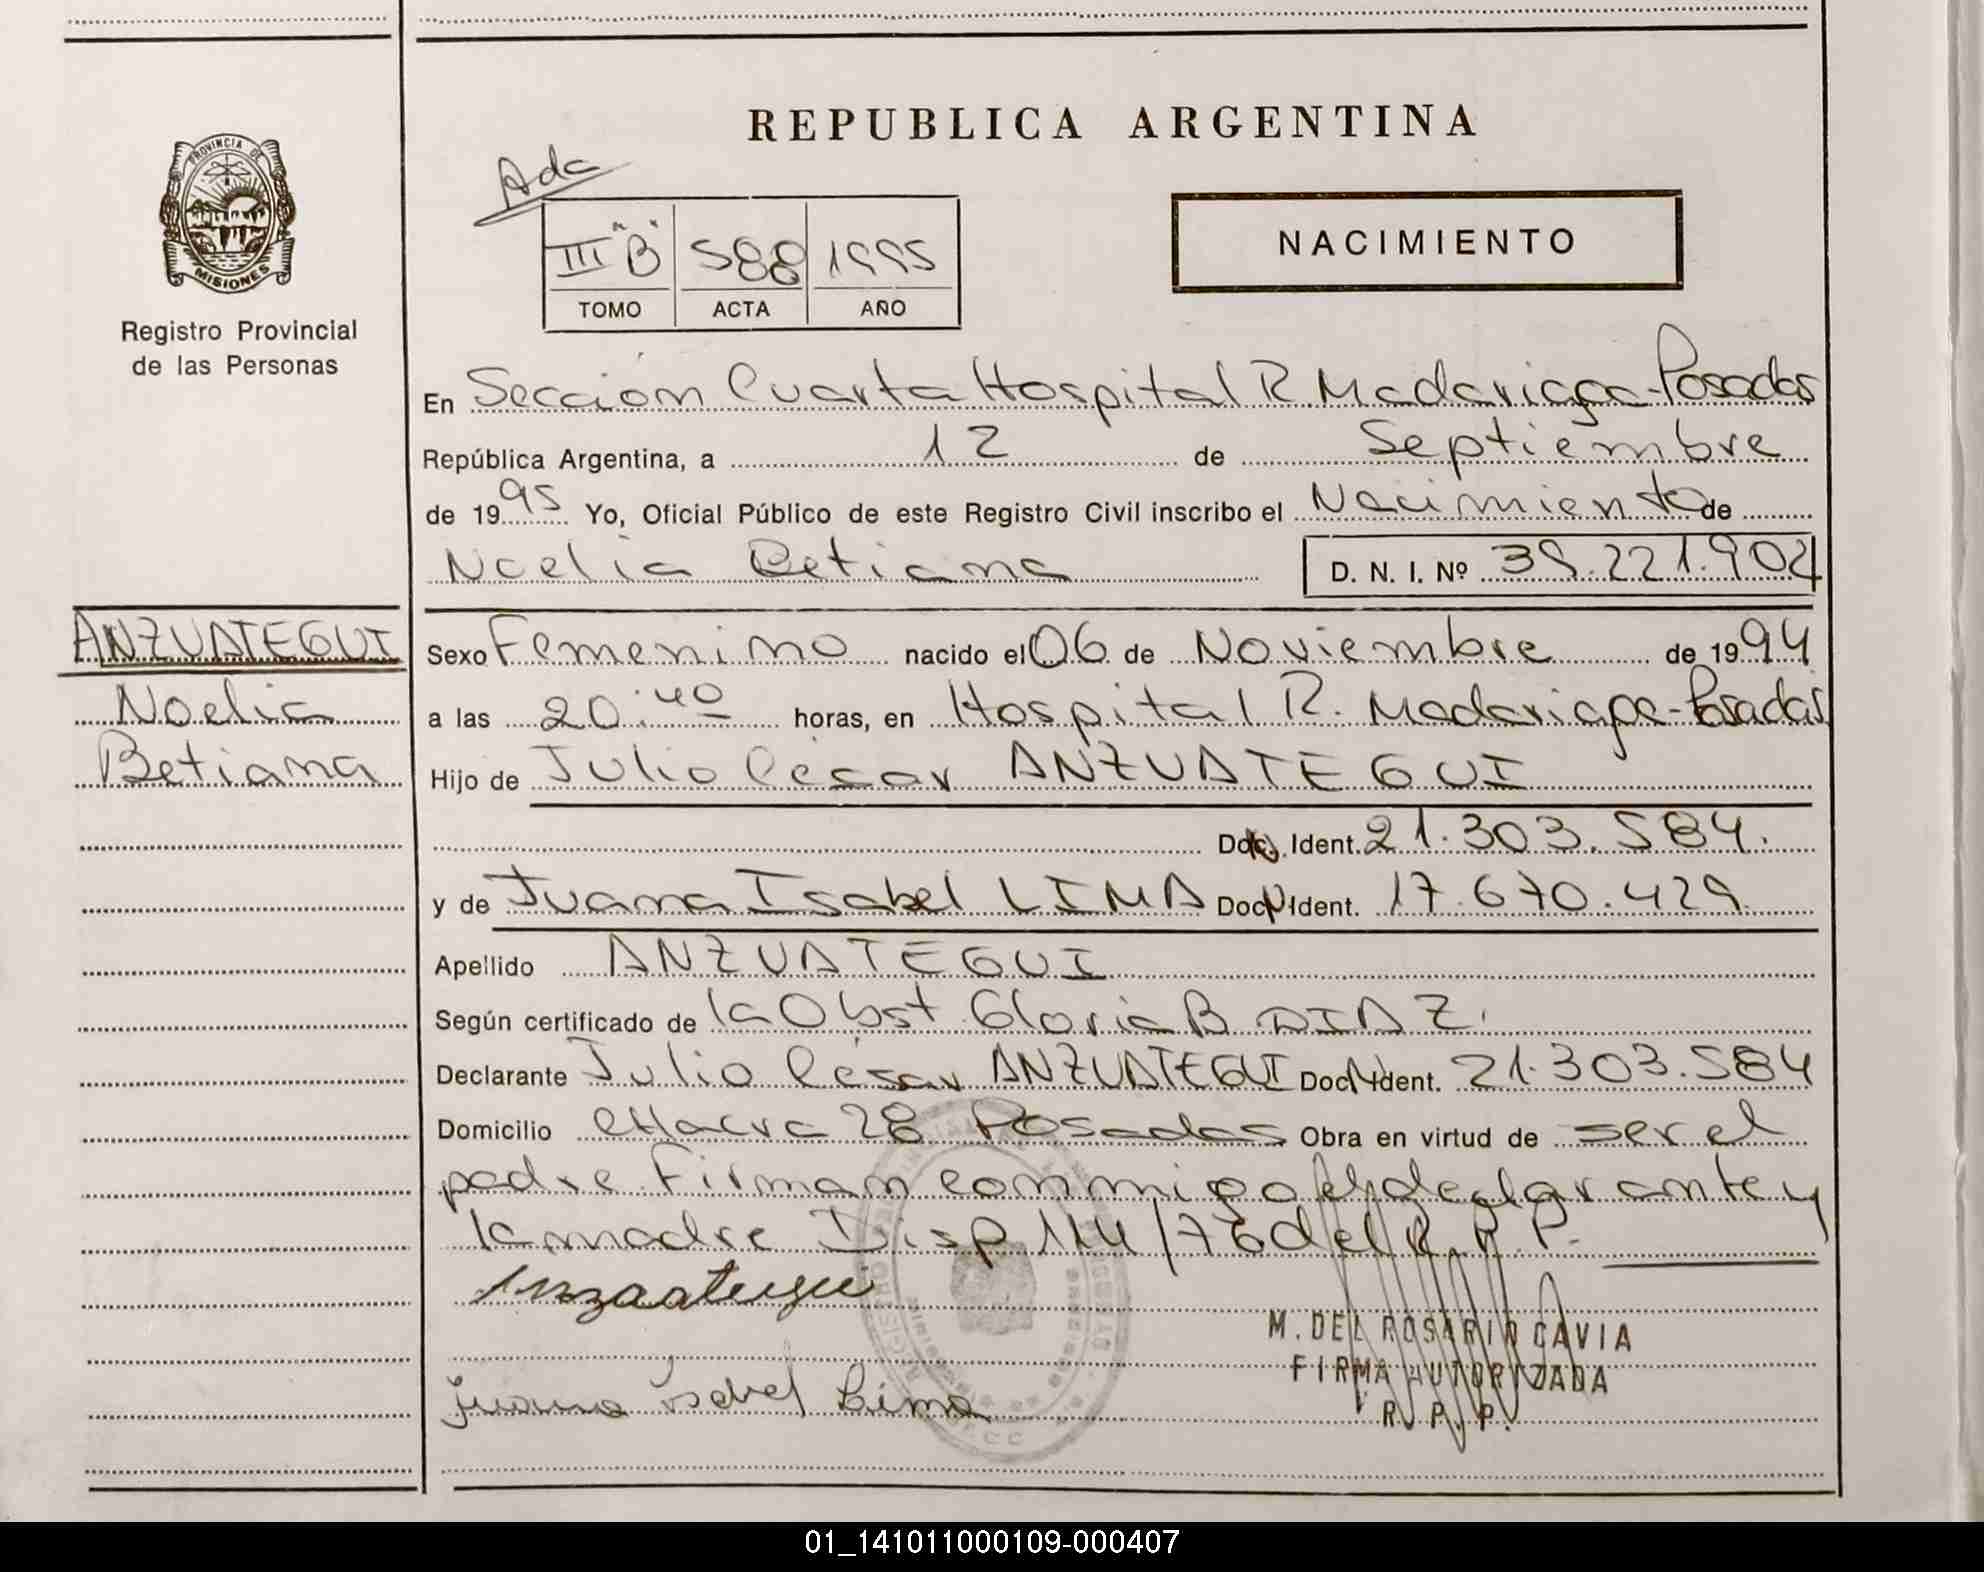 REPUBLICA ARGENTINA
PROVINCIA DE
MISIONES
Registro Provincial
de las Personas
Ada
III "B" 588 1995
TOMO ACTA AÑO
NACIMIENTO
En Sección Cuarta Hospital R. Madariaga-Posadas
República Argentina, a 12 de Septiembre
de 1995 Yo, Oficial Público de este Registro Civil inscribo el Nacimiento de
Noelia Betiana D. N. I. Nº 39.221.902
ANZUATEGUI
Noelia
Betiana
Sexo Femenino nacido el 06 de Noviembre de 1994
a las 20:40 horas, en Hospital R. Madariaga-Posadas
Hijo de Julio César ANZUATEGUI
Doc. Ident. 21.303.584.
y de Juana Isabel LIMA Doc. Ident. 17.670.429
Apellido ANZUATEGUI
Según certificado de la Obst Gloria B DIAZ.
Declarante Julio César ANZUATEGUI Doc. Ident. 21.303.584
Domicilio CHacra 28 Posadas Obra en virtud de ser el
padre Firman conmigo el declarante y
la madre Disp 114/76 del R.P.P.
Anzuategui
Juana Isabel Lima
M. DEL ROSARIO CAVIA
FIRMA AUTORIZADA
R. P. P.
01_141011000109-000407